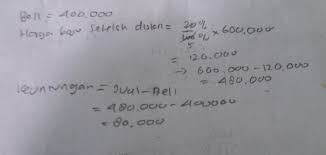 Beli = 400.000
Harga baju setelah diskon = 20%/100% × 600.000
5
= 120.000
→ 600.000 - 120.000
= 480.000
Keuntungan = Jual - Beli
= 480.000 - 400000
= 80.000